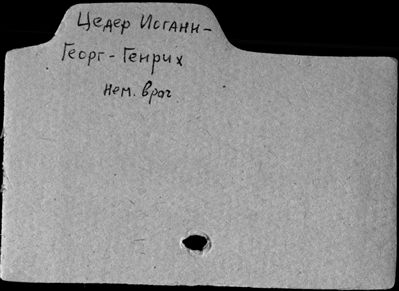 Цедер Иоганн-
Георг-Генрих
нем. врач